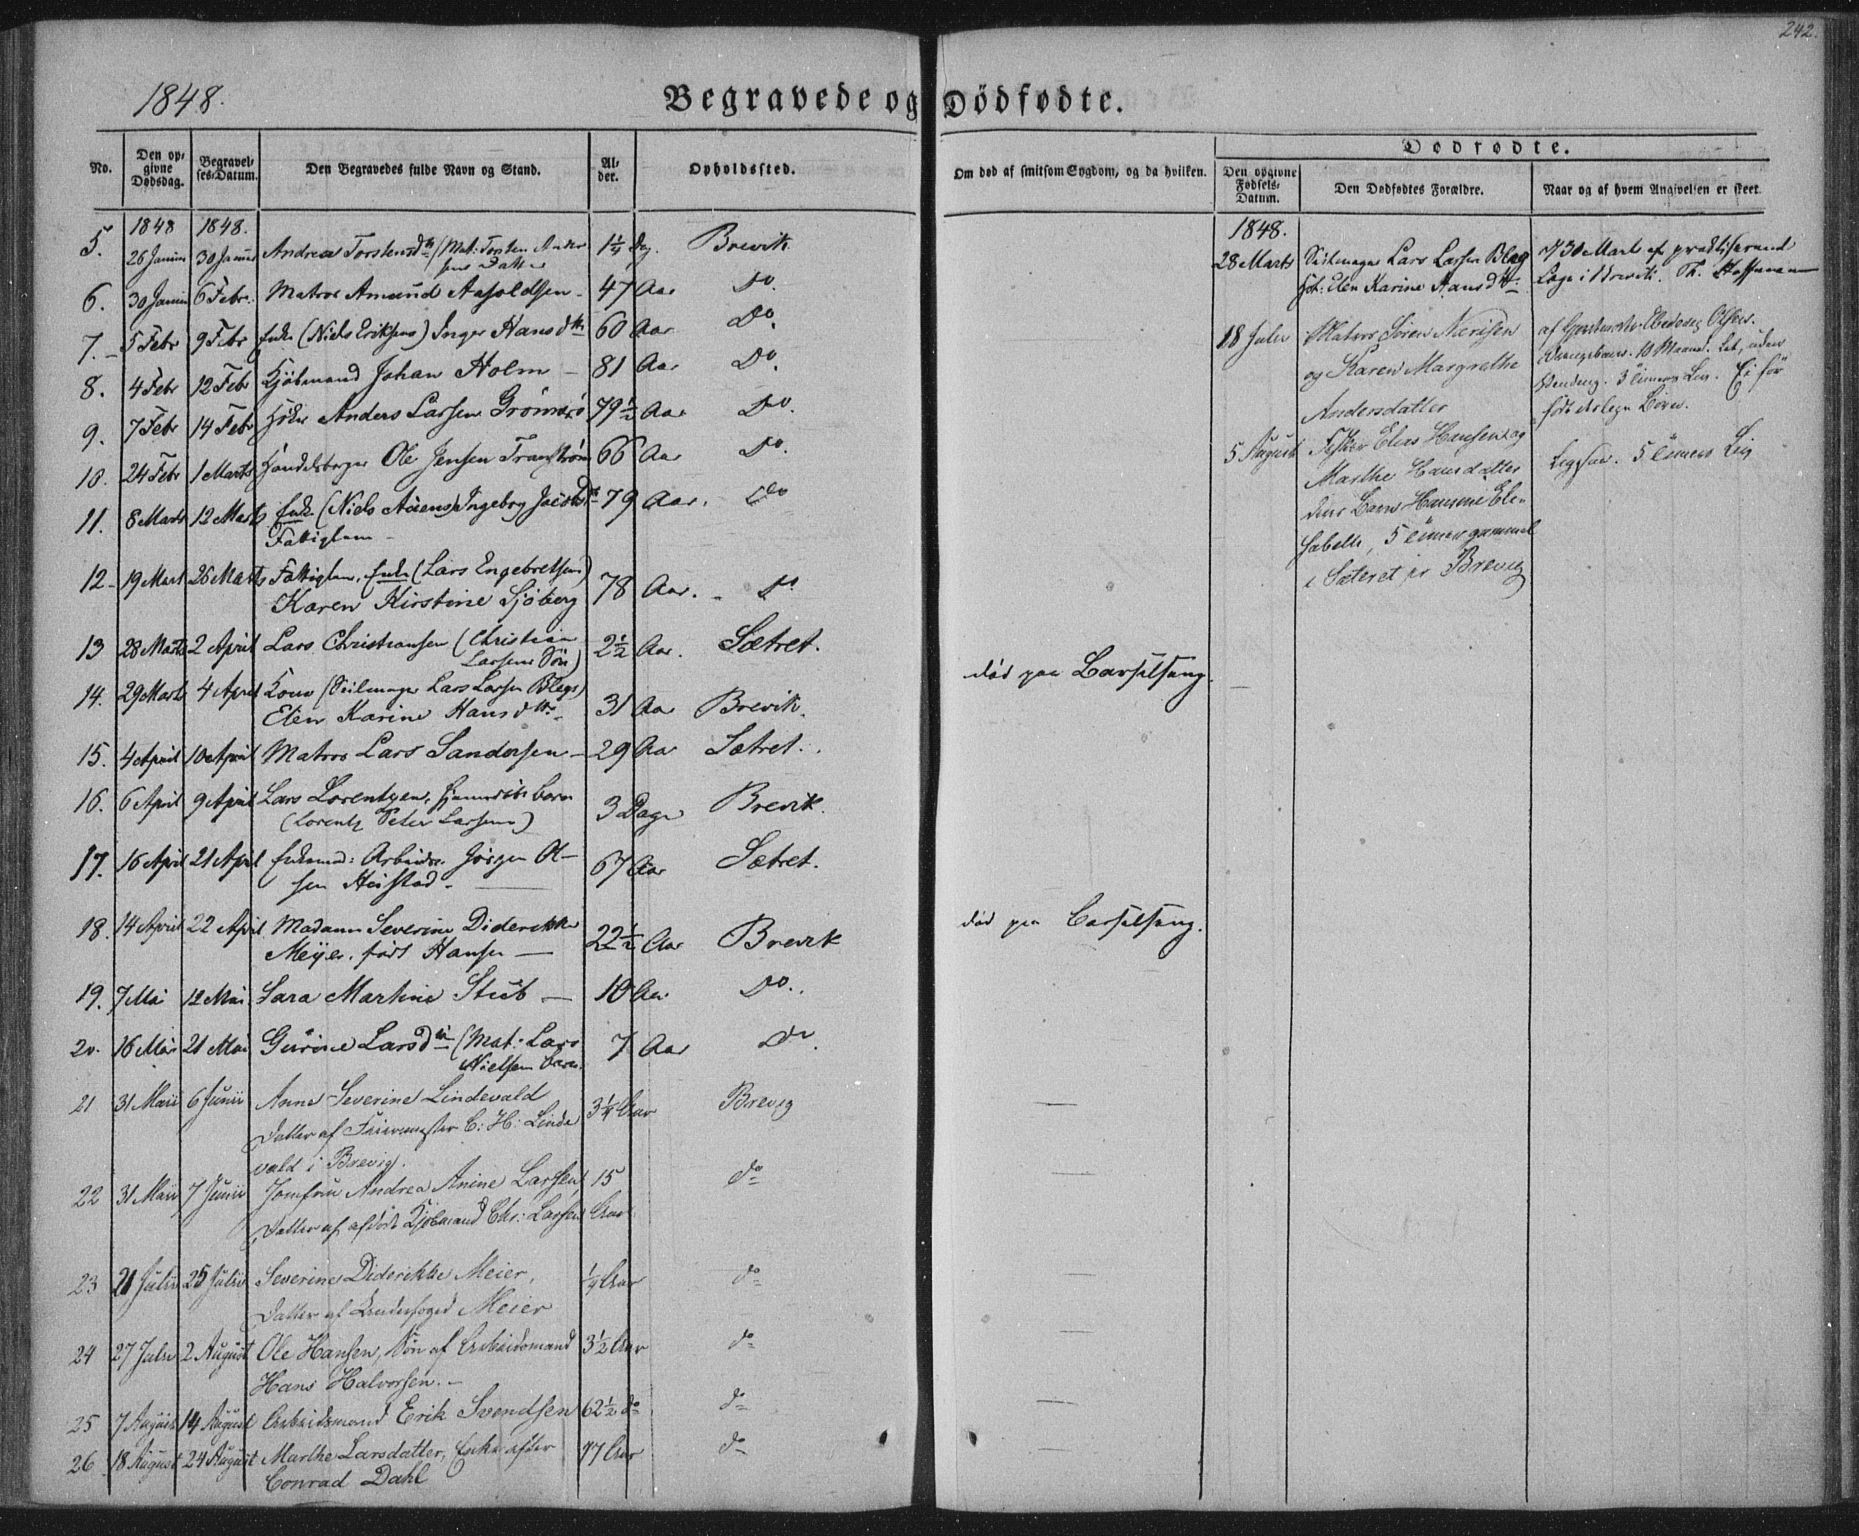 242.
1848.
Begravede og Dödfødte.
No.
Den opgivne Dødsdag.
Begravelses-Datum.
Den Begravedes fulde Navn og Stand.
Alder.
Opholdssted.
Om død af smitsom Sygdom, og da hvilken.
Dødfødte.
Den opgivne Fødsels-Datum.
Den Dødfødtes Forældre.
Naar og af hvem Angivelsen er skeet.
1848 1848.
5. 26 Januar 30 Januar Andrea Torstensdtr (Mat: Torsten Ander
sens Datter 1¼ Dag. Brevik
6. 30 Januar 6 Febr. Matros Amund Aasoldsen 47 Aar Do.
7. 5 Febr 9 Febr Enke (Niels Eriksens) Inger Hansdtr 60 Aar Do.
8. 4 Febr 12 Febr Kjöbmand Johan Holm 81 Aar Do.
9. 7 Febr 14 Febr Anders Larsen 79½ Aar Do.
10. 24 Febr 1 Marts Handelsborger Ole Jensen 66 Aar Do.
11. 8 Marts 12 Marts Enke (Niels) Ingeborg Jacobsdtr 79 Aar. Do
Fattiglem
12 19 Mart 26 Marts Fattiglem, Enke (Lars Engebretsens)
Karen Kirstine Sjöberg 78 Aar. Do
13 28 Marts 2 April Lars Christiansen (Christian
Larsens Sön) 2½ Aar. Sætret.
14. 29 Marts 4 April Kone (Seilmager Lars Larsen Blegs)
Elen Karine Hansdtr. 31 Aar Brevik. død paa Barselseng.
15. 4 April 10 April Matros Lars Sandersen 29 Aar Sætret.
16. 6 April 9 April Lars Lorentzen, hjemmedöbt barn
(Lorentz Peter Larsens) 3 Dage Brevik.
17. 16 April 21 April Enkemd: Arbeidsm. Jörgen Ol-
sen Heistad. 67 Aar Sætret.
18. 14 April 22 April Madame Severine Diderikke
Meyer, född Hansen 22½ Aar Brevik død paa Barselseng.
19. 7 Mai 12 Mai Sara Martine Stub 10 Aar Do.
20. 16 Mai 21 Mai Gurine Larsdtr (Mat. Lars
Nielsens barn. 7 Aar Do.
21 31 Maii 6 Junii Anne Severine Lindevald
Datter af C: H: Linde
vald i Brevig. 3¼ Aar Brevig
22 31 Maii 7 Junii Jomfru Andrea Anine Larsen, 15
Datter af afdöde Kjöbmand Chr: Larsen Aar do
23 21 Julii 25 Julii Severine Diderikke Meier,
Datter af Meier ¼ Aar do
24 27 Julii 2 August Ole Hansen, Sön af Arbeidsmand
Hans Halvorsen. 3½ Aar do
25 7 August 14 August Arbeidsmand Erik Svendsen 62½ do do
26 18 August 24 August Marthe Larsdatter, Enke efter
Conrad Dahl 77 Aar do
1848.
28 Marts Seilmager Lars Larsen Bleg
Elen Karine Hansdtr.
30 Marts af practiserende
Læge i Brevik. Th. Hoffmann
18 Julii Matros Sören
og Karen Margrethe
Andersdatter
5 August Elias Hansen og
Marthe Hansdatter
deres Barn
5 timer gammel
i Sæteret pr Brevig
5 timers Liv